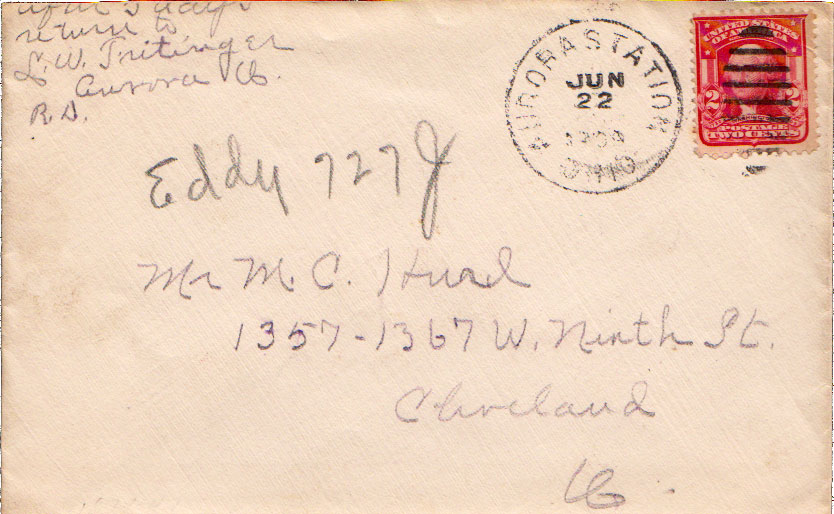 5 days
return to
L. W. Tritinger
Aurora O.
R.D.
AURORA STATION
JUN
22
1909
OHIO
UNITED STATES
OF AMERICA
2 2
POSTAGE
TWO CENTS
Eddy 727J
Mr M. C. Hurd
1357-1367 W. Ninth St.
Cleveland
O.